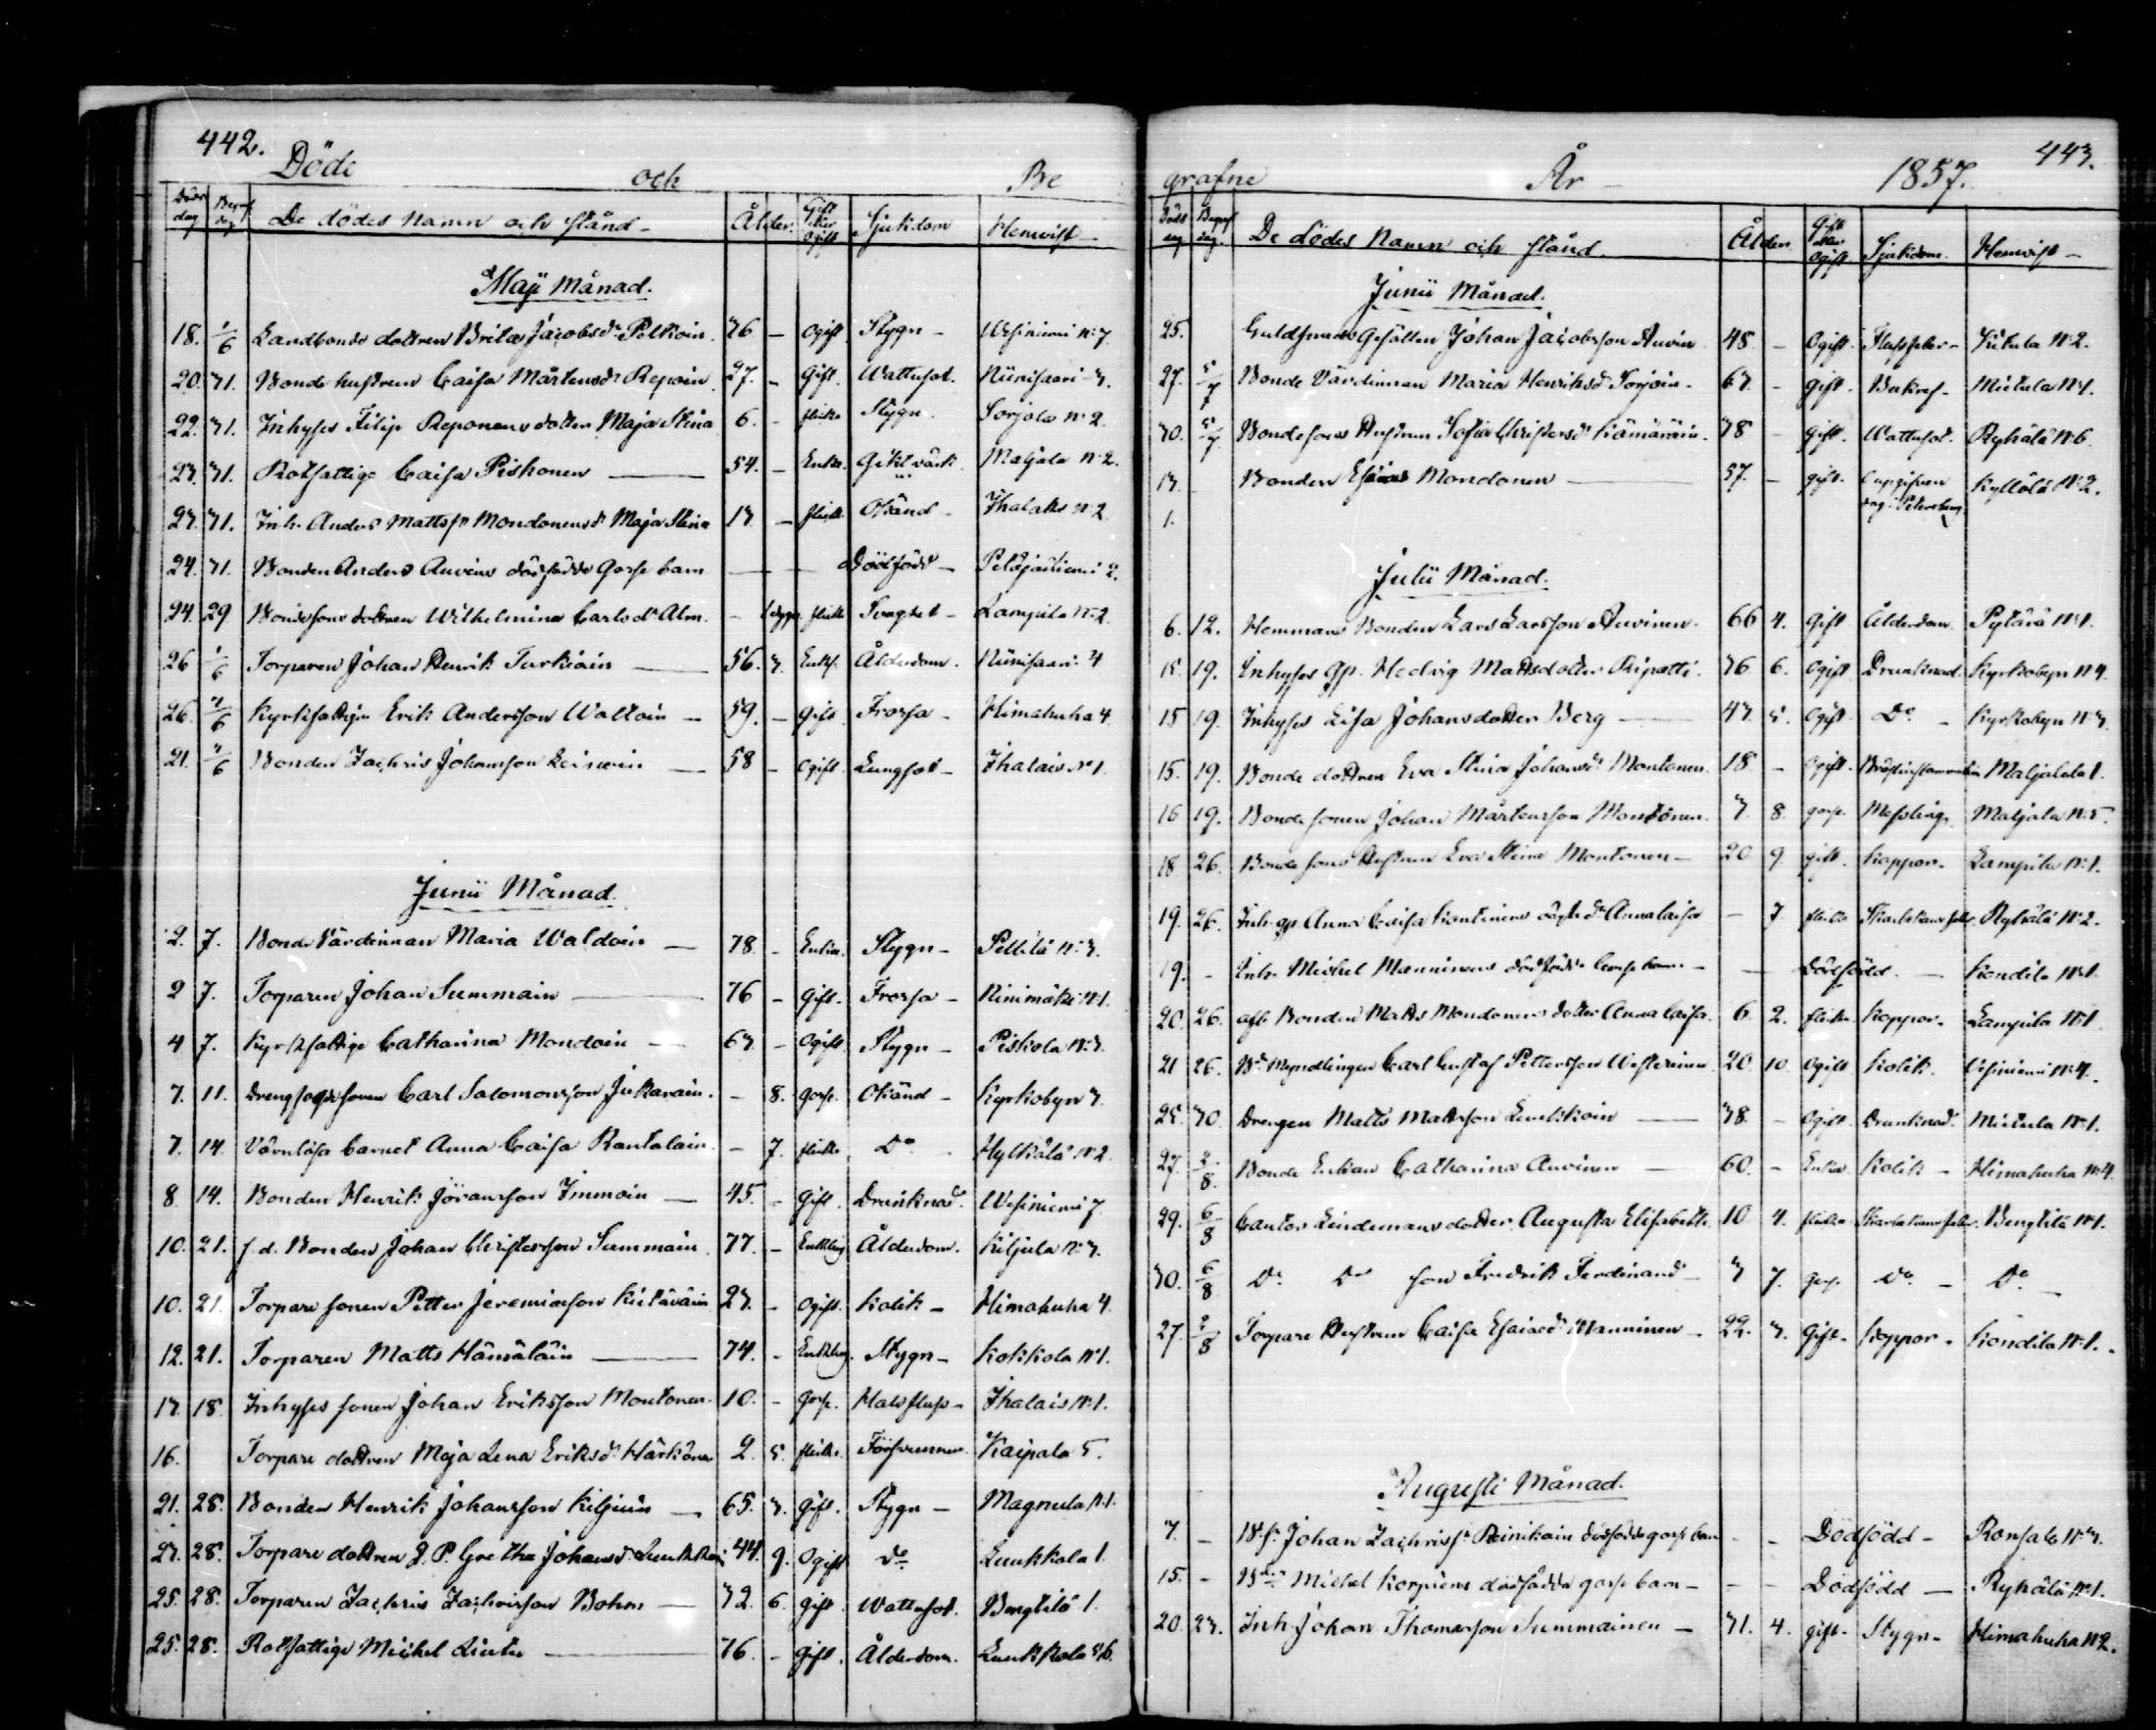 442.
Döde och Be
Döds dag Begraf dag De dödes namn och stånd Ålder. Gift eller Ogift Sjukdom Hemvist
Maji Månad.
18. 1/6 Landbonde dottren Brita Jacobsdr Pelkoin. 36 - Ogift Stygn - Wesiniemi No 7
20. 31. Bonde hustrun Caisa Mårtensdr Repoin. 27. - Gift. Wattusot. Niinisaari - 3.
22. 31. Inhyses Filip Reponens dotter Maja Stina 6. - flicka Stygn. Sorjola No 2.
23. 31. Rotfattige Caisa Piskonen 54. - Enka. Giktvärk Maljala No 2.
23. 31. Inh. Anders Mattsn Mondonens dr Maja Stina 13 - flicka Okänd - Ihalais No 2
24. 31. Bonden Anders Auvins dödfödde Gosse barn Dödfödd - Peldjärniemi 2.
24. 29 Bondesons dottren Wilhelmina Carlsdr Alm. - 1 dygn. flicka Svaghet - Lampila No 2.
26 1/6 Torparen Johan Henrik Turkiain 56. 3. Enkl. Ålderdom. Niinisaari 4
26. 7/6 Kyrkfattige Erik Andersson Waltain 59. - Gift Frossa - Himahuha 4.
21. 7/6 Bonden Zachris Johansson Leinoin 58 - Ogift Lungsot - Ihalais No 1.
Junii Månad.
2. 7. Bonde Värdinnan Maria Waldoin 78. - Enka. Stygn - Pellilä No 3.
2 7. Torparen Johan Summain 76 - Gift. Frossa - Ninimäki No 1.
4 7. Kyrkfattige Catharina Mondoin 63. - Ogift Stygn - Piskola No 3.
7. 11. Carl Salomonsson Jukarain. - 8. Gosse. Okänd - Kyrkobyn 3.
7. 14. Värnlösa barnet Anna Caisa Rantalain. - 7. flicka. Do - Hylkälä No 2
8 14. Bonden Henrik Göransson Immoin 45. - Gift. Drunknad. Wesiniemi 7
10. 21. f. d. Bonden Johan Christersson Summain. 77. - Enkling Ålderdom. Kiljula No 3.
10. 21. Torpare sonen Petter Jeremiasson Kietäväin 23. - Ogift. Kolik - Himahuha 4.
12. 21. Torparen Matts Hämäläin 74. - Enkling. Stygn - Kokkola No 1.
13. 18. Inhyses sonen Johan Eriksson Montonen. 10. - Gosse. Halsfluss - Ihalais No 1.
16. Torpare dottren Maja Lena Eriksdr Härkönen 2. 5. flicka. Försvunnen. Kaipala 5.
21. 28. Bonden Henrik Johansson Kiljuin 65. 3. Gift. Stygn - Magnula No 1.
23. 28. Torpare dottren Gretha Johansdr Luukkoin 44. 9. Ogift do Luukkala 1.
25. 28. Torparen Zachris Zachrisson Bohm 32. 6. gift. Wattusot. Bengtilä 1.
25. 28. Rotfattige Michel Liuto 76. - Gift. Ålderdom. Luukkala No 6.
443.
grafne År 1857.
Döds dag Begraf dag. De dödes Namn och stånd. Ålder Gift eller Ogift Sjukdom. Hemvist -
Junii Månad.
25. Guldsmeds Gesällen Johan Jacobsson Auvin 48. - Ogift. Kiitula No 2.
27. 5/7 Bonde Värdinnan Maria Henriksdr Torjoin. 63. - gift. Mietula No 1.
30. 5/7 Bondesons Hustrun Sofia Christersdr Kämäräin. 38 - gift. Wattusot. Ryhälä No 6.
13. Bonden Esaias Mondonen 57. - gift. Kyllölä No 2.
1.
Julii Månad.
6. 12. Hemmans Bonden Lars Larsson Auvinen. 66 4. Gift Ålderdom. Pytärä No 1.
15. 19. Inhyses gp. Hedvig Mattsdotter Kipatti. 36 6. Ogift Drunknad. Kyrkobyn No 4.
15 19. Inhyses Lisa Johansdotter Berg 43. 5. Ogift Do - Kyrkobyn No 3.
15. 19. Bonde dottren Eva Stina Johansdr Montonen. 18. - Ogift. Bröstinflammation Maljala 1.
16 19. Bonde sonen Johan Mårtensson Montonen. 3. 8. gosse. Messling. Maljala No 5.
18 26. Bonde sons Hustrun Eva Stina Montonen - 20 9 gift. Koppor. Lampila No 1.
19. 26. Inh. gp. Anna Caisa Kontinens dr Anna Caisa - 7. flicka Skarlakansfeber. Ryhälä No 2.
19. - Inh. Michel Manninens dödfödde Gosse barn - Dödfödd. - Kondila No 1.
20. 26. afl. Bonden Matts Mondonens dotter Anna Caisa. 6. 2. flicka Koppor. Lampila No 1
21 26. Bde Myndlingen Carl Gustaf Pettersson Westerinen 20. 10 Ogift Kolik. Wesiniemi No 4.
25. 30. Drengen Matts Mattsson Luukkoin 38. - Ogift. Drunknad. Mietula No 1.
27. 2/8. Bonde Enkan Catharina Auvinen 60. - Enka Kolik - Himahuha No 4
29. 6/8 Cantor Lindemans dotter Augusta Elisabeth. 10 4. flicka Skarlakansfeber. Bengtilä No 1.
30. 6/8 Do Do son Fredrik Ferdinand - 3 7. Gosse. Do. - Do -
27. 2/8 Torpare Hustrun Caisa Esaiaedr Manninen - 22. 3. Gift. Koppor - Kondila No 1.
Augusti Månad.
3. - Bs. Johan Zachrissn Reinikain dödfödde gosse barn - - Dödfödd - Ronsala No 3.
15. - Bden Michel Korpiens dödfödda gosse barn - - - Dödfödd - Ryhälä No 1.
20. 23. Inh. Johan Thomasson Summainen - 31. 4. gift. Stygn - Himahuha No 2.